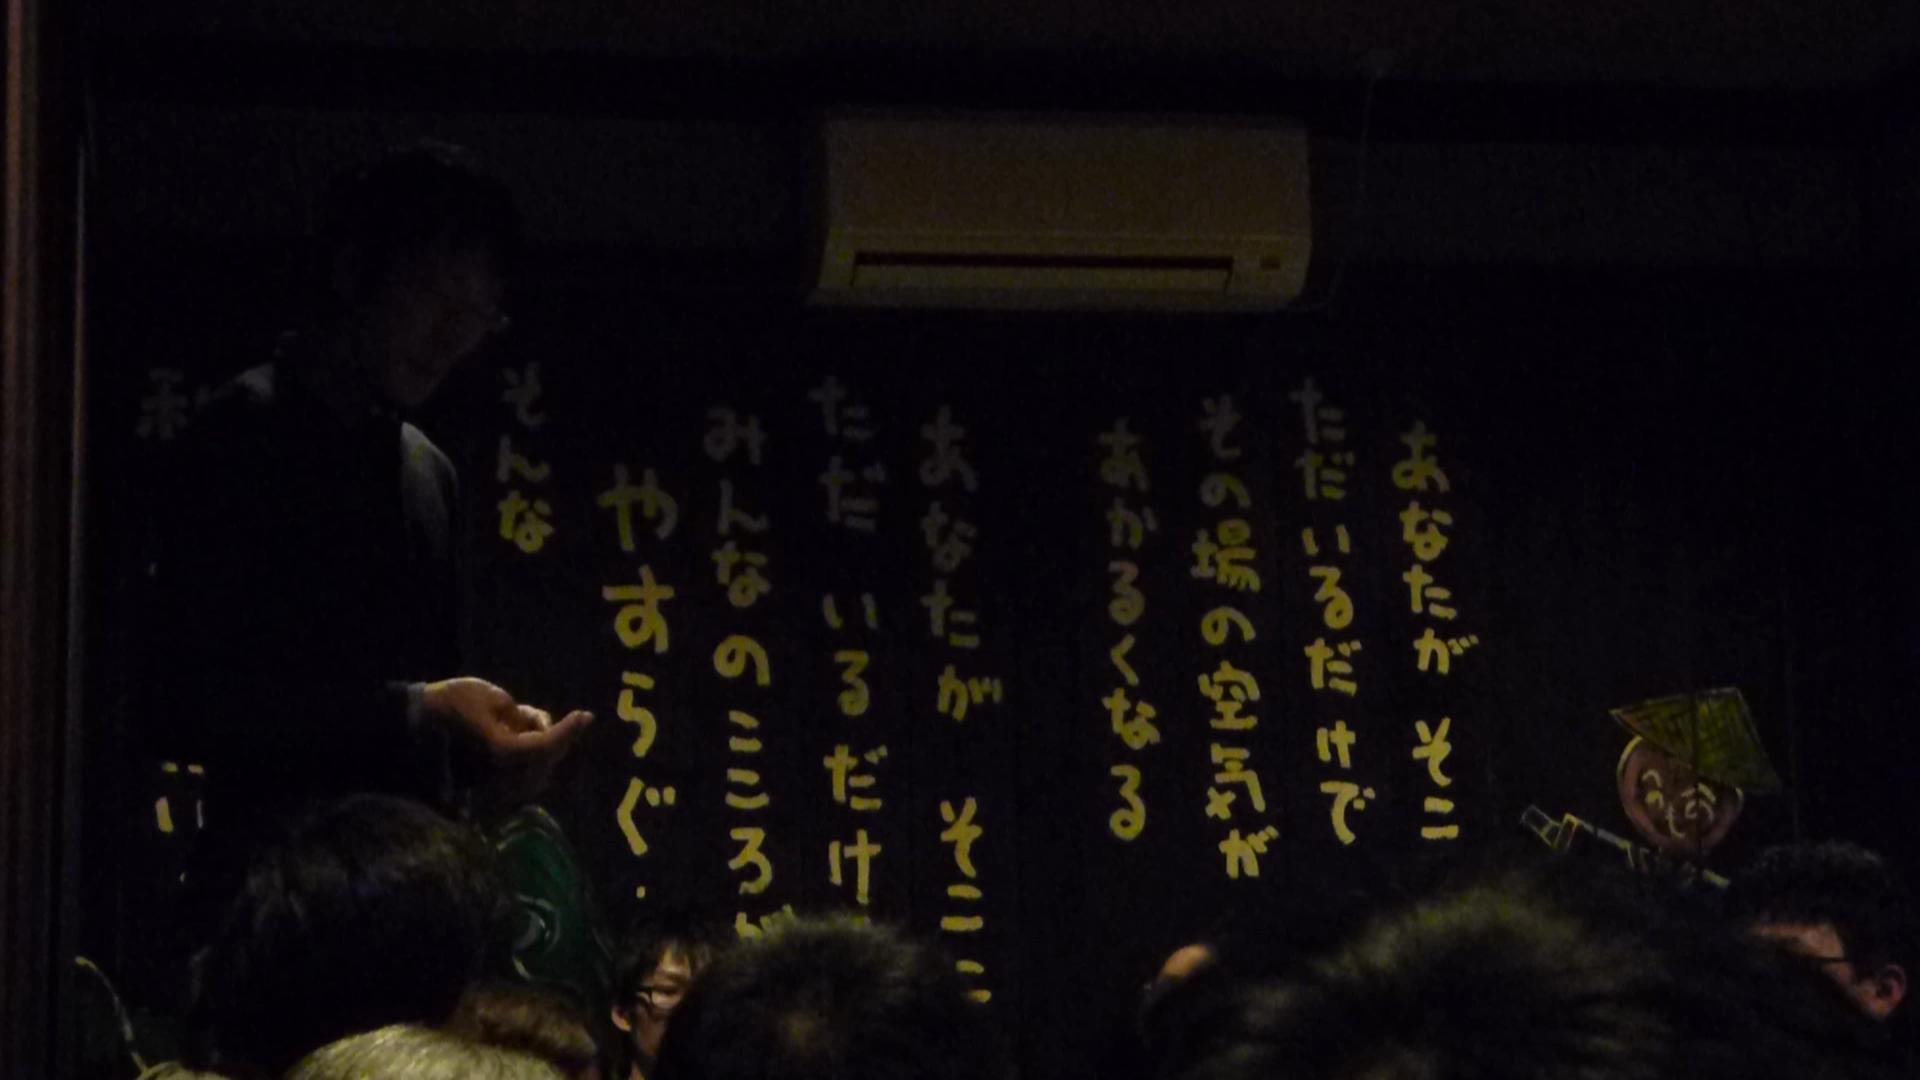 あなたが そこ
ただいるだけで
その場の空気が
あかるくなる
あなたが そこ
ただ いるだけ
みんなのこころが
やすらぐ
そんな